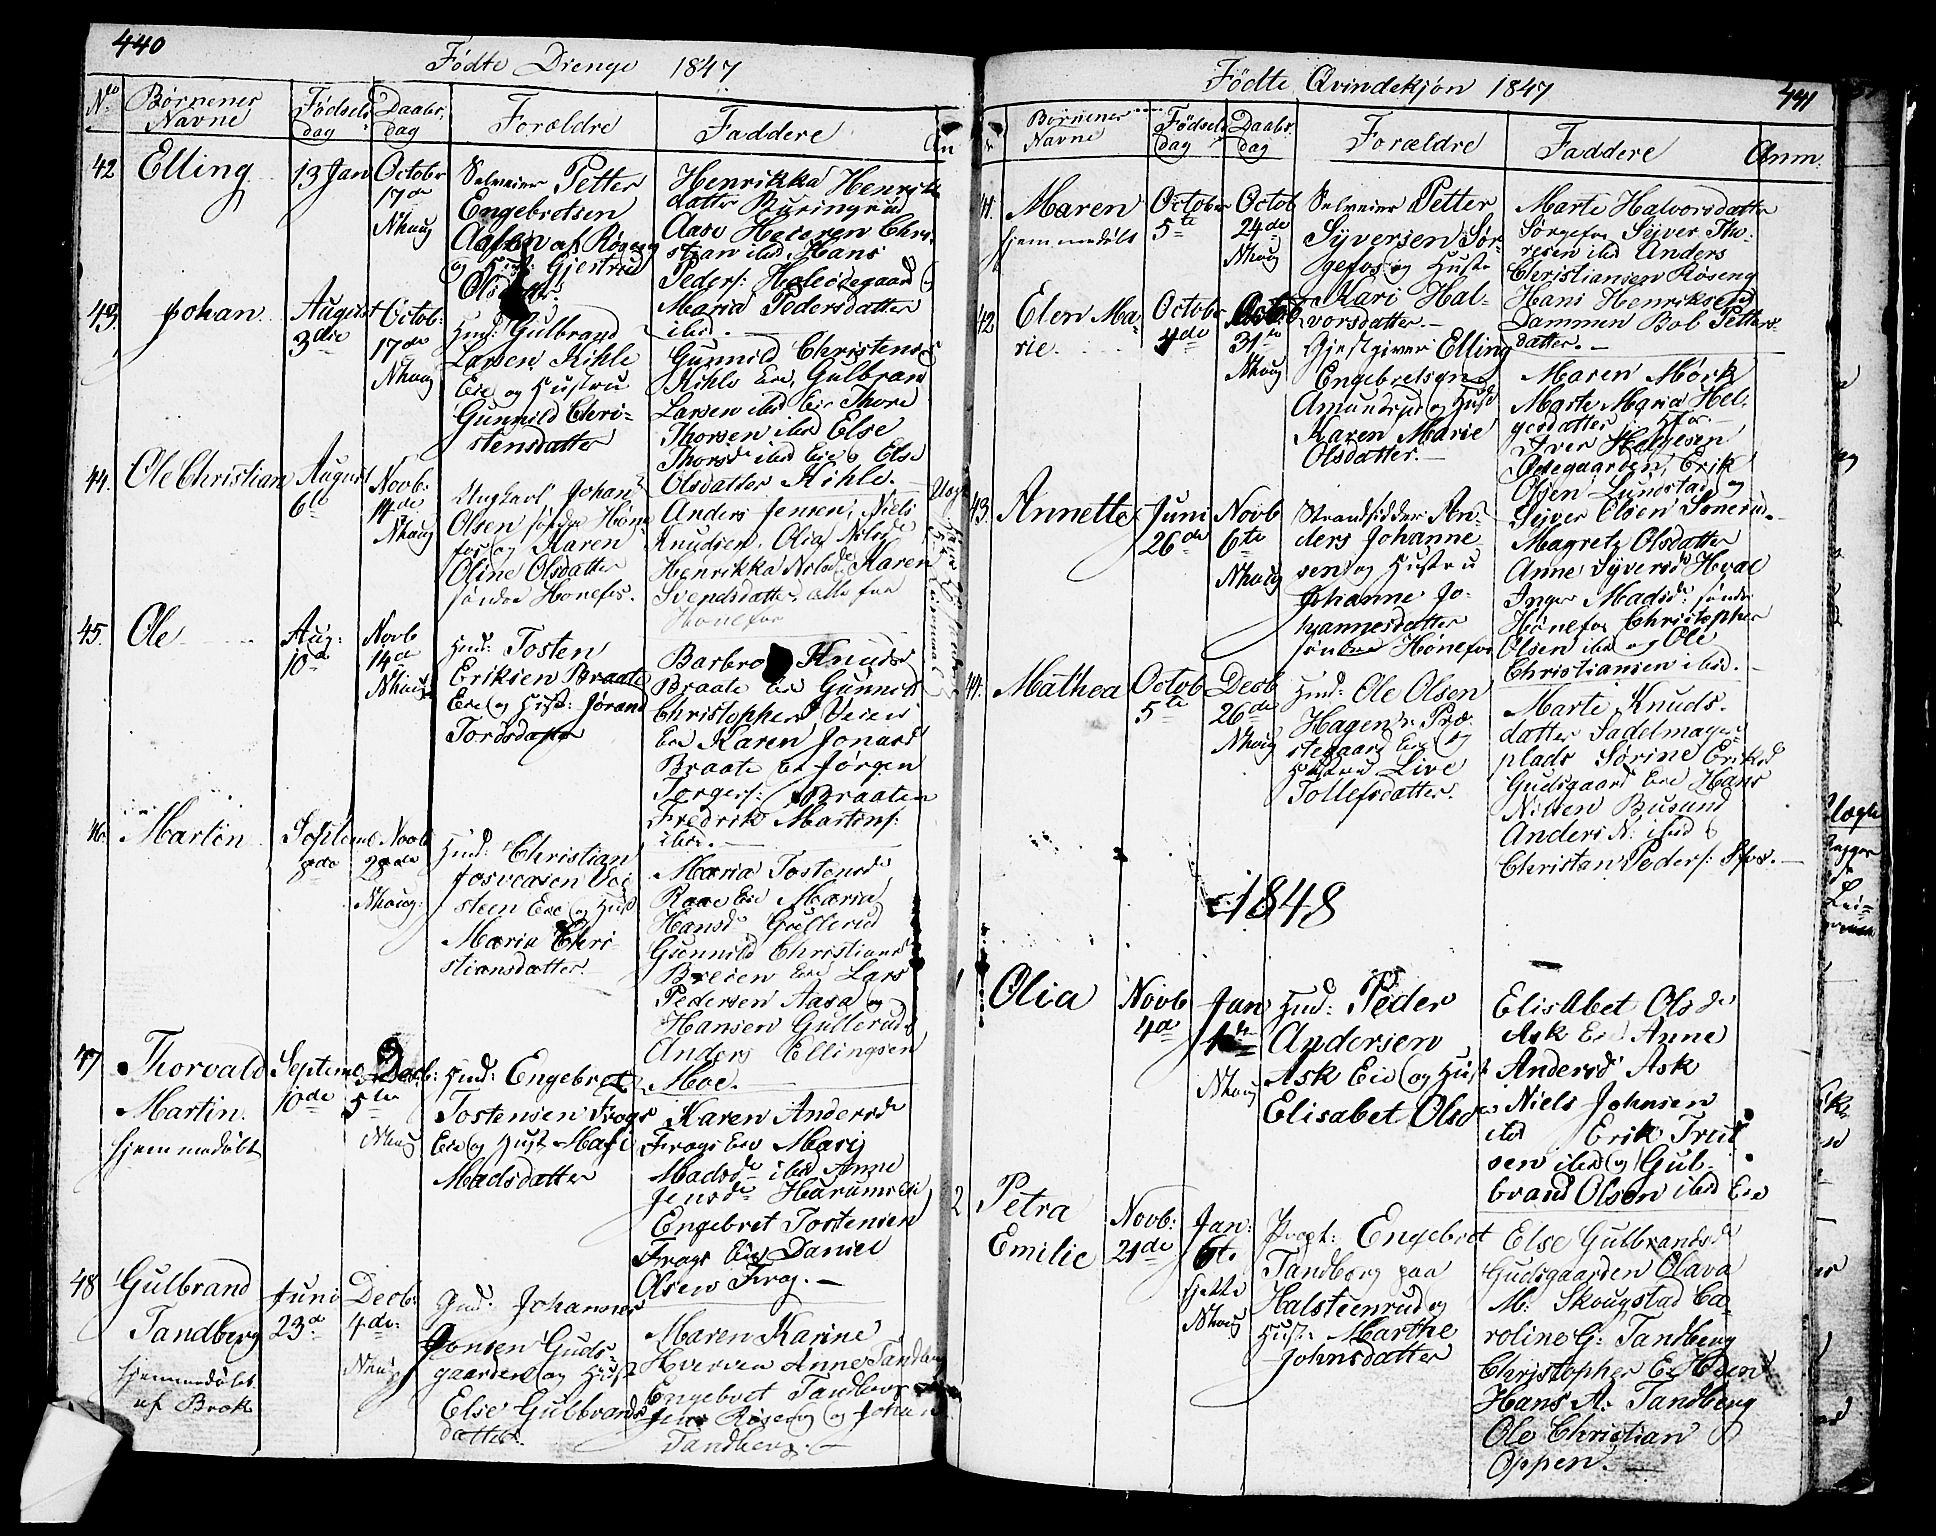 440
Fødte Drenge 1847
No
Børnenes
Navne
Fødsels
dag
Daabs
dag
Forældre
Faddere
42 Elling
13 Jan
October
17de
Nhoug
Selveier Petter
Engebretsen
og Gjertrud
Olsdatter
Henrikka Henriks
datter Buringrud
ibid. Hans
Peders:
Maria Pedersdatter
ibid.
43. Johan
August
3die
Octob:
17de
Nhoug
Huusm: Gulbrand
Larsen Kihle
Eie og Hustru
Gunnild Chri-
stensdatter
Gunnild Christensd
Kihle Eie, Gulbran
Larsen ibid Eie Thore
Thorsen ibid Else
Thorsd ibid Eie Else
Olsdatter Kihle.
44. Ole Christian
August
6te
Novb.
14de
Nhoug
Ungkarl Johan
Olsen søndre Høne
fos og Karen
Oline Olsdatter
søndre Honefos.
Anders Jensen, Niels
Knudsen, Olia Nilsd
Henrikka Nilsd Karen
Svendsdatter, alle fra
Honefos
45. Ole
Aug:
10d
Novb
14de
Nhoug
Huusm: Tosten
Eriksen Braate
Eie og Hust: Jørand
Tordsdatter
Barbro Knudsd
Braate Eie Gunnild
Christophers Veien
Eie Karen Jonasd
Braate Eie Jørgen
Torgers: Braaten
Fredrik Martins:
ibid.
46. Martin
Septemb
8de
Novb
28de
Nhoug:
Huusm: Christian
steen Eie og Hust
Maria Chri-
stiansdatter
Maria Tostensd
Raae Eie Maria
Hansd Gullerud
Gunnild Christiansd
Breien Eie Lars
Pedersen Aasa og
Hansen Gullerud
Anders Ellingsen
Moe.
47 Thorvald
Martin
hjemmedøbt
Septemb
10de
Decb:
5te
Nhoug
Huusm: Engebret
Tostensen Frogs
Eie og Hust Mari
Madsdatter
Karen Andersd
Frogs Eie Mari
Madsd ibid Anne
Jensd Harums Eie
Engebret Tostensen
Frogs Eie Daniel
Olsen Frog.
48 Gulbrand
Tandberg
hjemmedøbt
af Brok
Juni
23d
Decb:
4de
Nhoug
Gmd: Johannes
Jonsen Guds
gaarden og Hust
Else Gulbrands
datter
Maren Karine
Hversven Anne Tandberg
Engebret Tandberg
Jens Røseng og Johan
Tandberg.
Fødte Qvindekjøn 1847
441
Børnenes
Navne
Fødsels
dag
Daabs
dag
Forældre
Faddere
Anm.
41. Maren
hjemmedøbt
October
5te
Octob
24de
Nhoug
Selveier Petter
Syversen Sør-
gefos og Hustr
Kari Hal-
vorsdatter.
Marte Halvorsdatter
Sørgefos Syver Tho-
resen ibid Anders
Christiansen Røseng
Hans Henriksen
Dammen Bol Petters
datter.
42 Elen Ma-
rie
October
4de
Octob
31te
Nhoug
Gjestgiver Elling
Engebretsen
Amundrud og Hust
Karen Marie
Olsdatter.
Maren Mørk
Marte Maria Hel-
gesdatter Hfos.
Iver Helgesen
Ødegaarden, Erik
Olsen Lundstad og
Syver Olsen Sonerud.
43. Annette
Juni
26de
Novb
6te
Nhoug
Strandsidder An-
ders Johanne-
sen og Hustru
Johanne Jo-
hannesdatter
søndre Hønefos
Magrete Olsdatter
Anne Syversd Hval
Inger Madsd: søndre
Hønefos Christopher
Olsen ibid og Ole
Christiansen ibid.
44. Mathea
Octob
5te
Decb
26de
Nhoug
Huusm: Ole Olsen
Hagen Præ-
stegaard Eie og
Hustru Live
Tollefsdatter.
Marte Knuds-
datter Sadelmager-
plads Sørine Eriksd
Gudsgaard Eie Hans
Nilsen Busund
Anders N: ibid
Christian Peders: Hfos.
1848
1 Olia
Novb
4de
Jan
Nhoug
Huusm: Peder
Andersen
Ask Eie og Hust
Elisabet Olsd
Elisabet Olsd
Ask Eie Anne
Andersd Ask
Niels Johnsen
ibid Erik Trul
sen ibid og Gul-
brand Olsen ibid Eie
2 Petra
Emilie
Novb:
21de
Jan:
6te
Nhoug
Engebret
Tandberg paa
Halsteenrud og
Hust: Marthe
Johnsdatter
Else Gulbrandsd
Gudsgaarden Olava
M: Skougstad Ca-
roline G: Tandberg
Christopher E: Heen
Hans A: Tandberg
Ole Christian
Oppen.